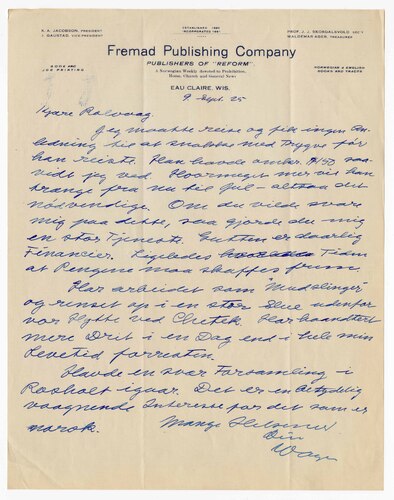 K. A. JACOBSON, PRESIDENT
I. GAUSTAD, VICE PRESIDENT
ESTABLISHED 1890
INCORPORATED 1891
PROF. J. J. SKORDALSVOLD, SEC'Y
WALDEMAR AGER, TREASURER
Fremad Publishing Company
PUBLISHERS OF "REFORM"
BOOK AND
JOB PRINTING
A Norwegian Weekly devoted to Prohibition,
Home, Church and General News
NORWEGIAN & ENGLISH
BOOKS AND TRACTS
EAU CLAIRE, WIS.
9 Sept. 25
Kjære Rolvaag
Jeg maatte reise og fik ingen An-
ledning til at snakke med Trygve før
han reiste. Han havde omkr. $150 saa-
vidt jeg ved Hvormeget mer vil han
trænge fra nu til Jul - altsaa det
nødvendige. Om du vilde svar
mig paa dette, saa gjorde du mig
en stor Tjeneste. Gutten er daarlig
Financier. Ligeledes Tiden
at Pengene maa skaffes frem.
Har arbeidet som "Mudslinger"
og renset op i en stor Slue udenfor
vor Hytte ved Chetek. Har haandtert
mere Drit i en Dag end i hele min
Levetid forresten.
Havde en svær Forsamling i
Rosholt igaar. Det er en betydelig
vaagnende Interesse for det som er
norsk.
Mange Hilsener
Din
Wage